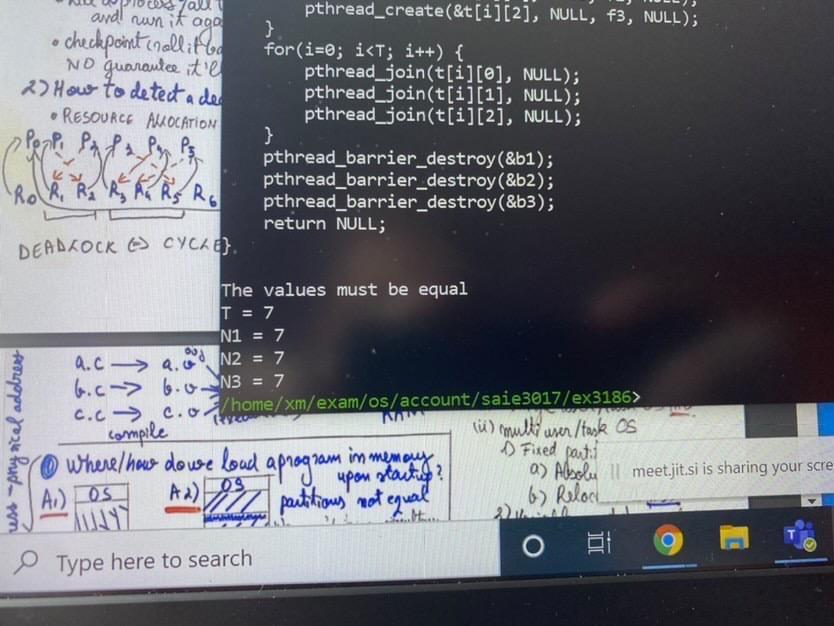 and run it aga
• checkpoint (roll it ba
NO guarantee it'l
2) How to detect a dea
• RESOURCE ALLOCATION
P0 P1 P2 P3 P4 P5
R0 R1 R2 R3 R4 R5 R6
DEADLOCK <=> CYCLE
pthread_create(&t[i][2], NULL, f3, NULL);
}
for(i=0; i<T; i++) {
pthread_join(t[i][0], NULL);
pthread_join(t[i][1], NULL);
pthread_join(t[i][2], NULL);
}
pthread_barrier_destroy(&b1);
pthread_barrier_destroy(&b2);
pthread_barrier_destroy(&b3);
return NULL;
}
The values must be equal
T = 7
N1 = 7
N2 = 7
N3 = 7
/home/xm/exam/os/account/saie3017/ex3186>
ress - physical address
a.c → a.o
b.c → b.o
c.c → c.o
compile
RAM
① Where/how do we load a program in memory
upon startup?
A1) OS
A2) OS
partitions not equal
(ii) multi user/task OS
1) Fixed parti
a) Absolu
b) Reloc
meet.jit.si is sharing your scre
Type here to search